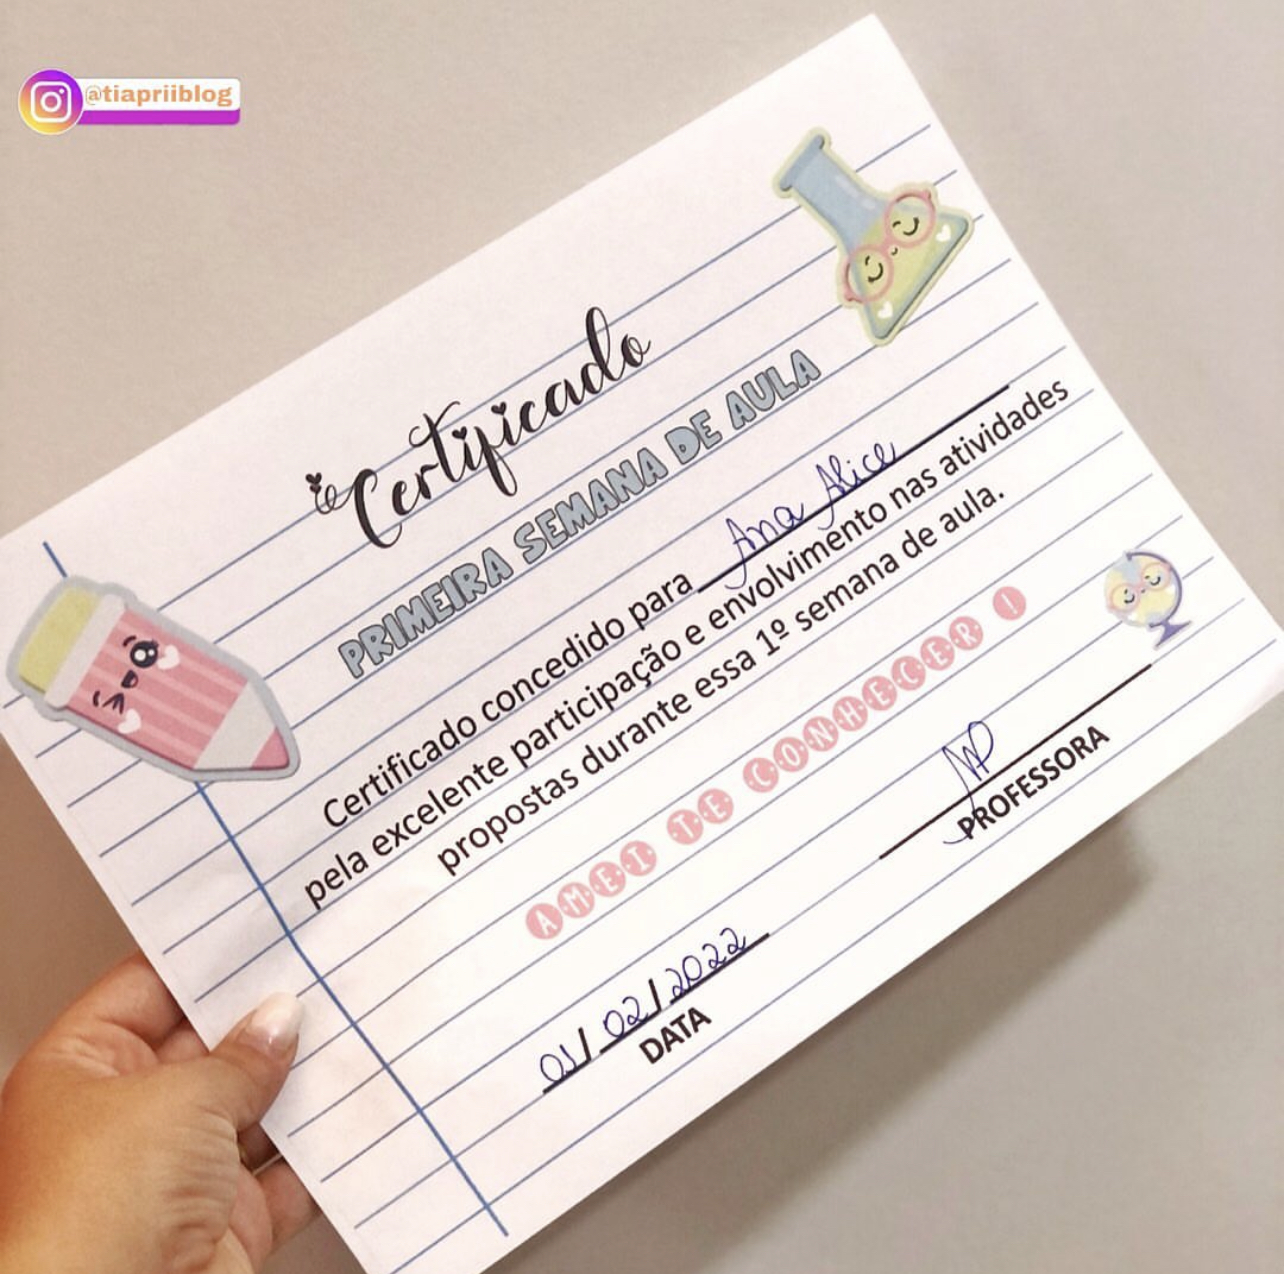 @tiapriiblog
Certificado
PRIMEIRA SEMANA DE AULA
Certificado concedido para Ana Alice
pela excelente participação e envolvimento nas atividades
propostas durante essa 1º semana de aula.
AMEI TE CONHECER !
PROFESSORA
01/02/2022
DATA